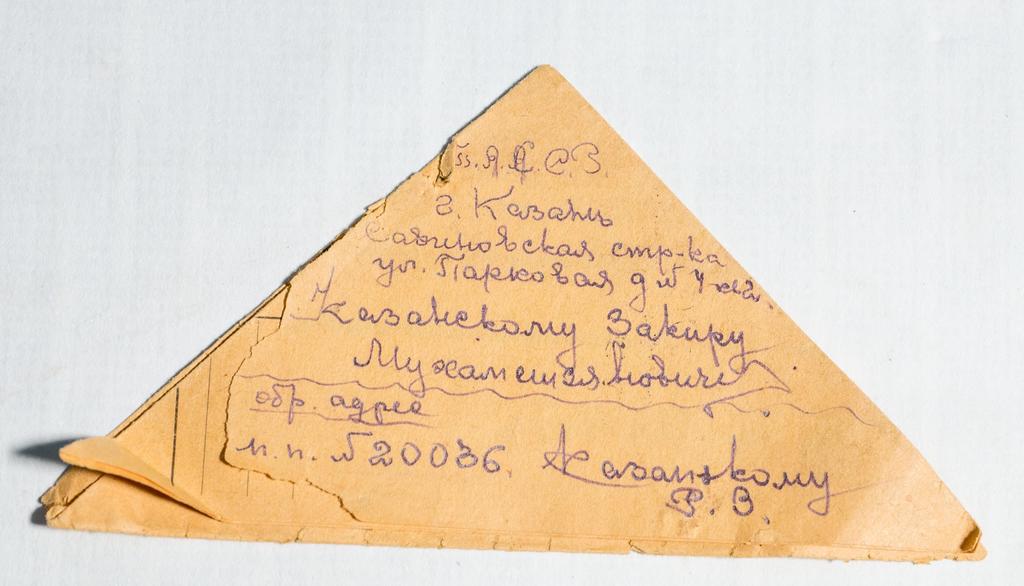 Т.А.С.С.Р.
г. Казань
Савиновская стр-ка
ул. Парковая д №4 кв 2.
Казанскому Закиру
Мухамедзяновичу
обр. адрес
п.п. №20036. Казанскому
Р. З.